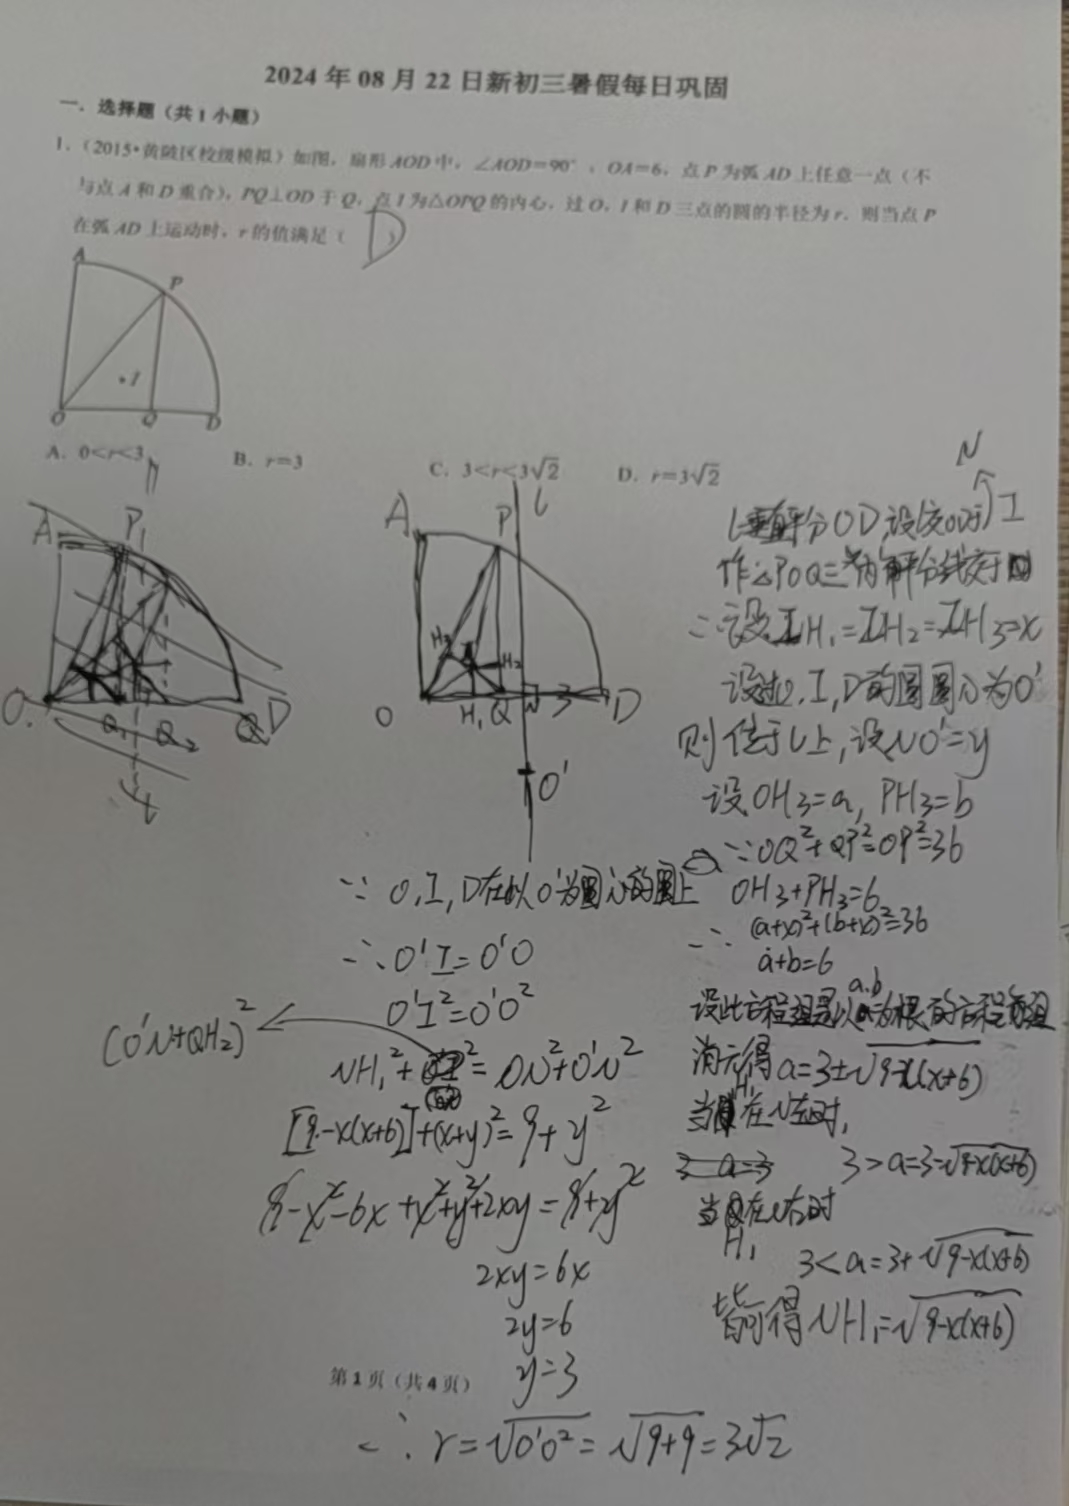 2024 年 08 月 22 日新初三暑假每日巩固
一．选择题（共 1 小题）
1.（2015•黄陂区校级模拟）如图，扇形 AOD 中，∠AOD=90°，OA=6，点 P 为弧 AD 上任意一点（不
与点 A 和 D 重合），PQ⊥OD 于 Q，点 I 为△OPQ 的内心，过 O，I 和 D 三点的圆的半径为 r．则当点 P
在弧 AD 上运动时，r 的值满足（ D ）
A
P
I
O
Q
D
A．0<r<3
B．r=3
C．3<r<3√2
D．r=3√2
A
P₁
O
Q₁
Q₂
D
A
P
l
H₃
H₂
O
H₁
Q
N
3
D
O'
N
l垂直平分OD,设l交OD于I
作△POQ三条内角平分线交于
∴设IH₁=IH₂=IH₃=x
设过O,I,D的圆圆心为O'
则位于l上,设NO'=y
设OH₃=a, PH₃=b
∵OQ²+QP²=OP²=36
OH₃+PH₃=6
∴(a+x)²+(b+x)²=36
a+b=6
设此方程组是以a,b为根的方程组
消元得a=3±√9-x(x+6)
当H₁在N左时,
3>a=3-√9-x(x+6)
当H₁在N右时
3<a=3+√9-x(x+6)
皆可得NH₁=√9-x(x+6)
∵O,I,D在以O'为圆心的圆上
∴O'I=O'O
O'I²=O'O²
(O'N+QH₂)²
NH₁²+ ²=ON²+O'N²
[9-x(x+6)]+(x+y)²=9+y²
9-x²-6x+x²+y²+2xy=9+y²
2xy=6x
2y=6
y=3
第 1 页（共 4 页）
∴r=√O'O²=√9+9=3√2